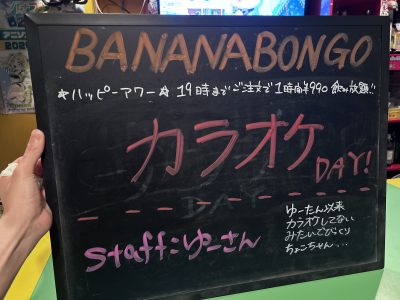 BANANABONGO
☆ハッピーアワー☆ 19時までご注文で1時間¥990 飲み放題!!
カラオケ DAY!
staff:ゆーさん
ゆーたん以来
カラオケしてない
みたいでびっくり
ちょこちゃん...